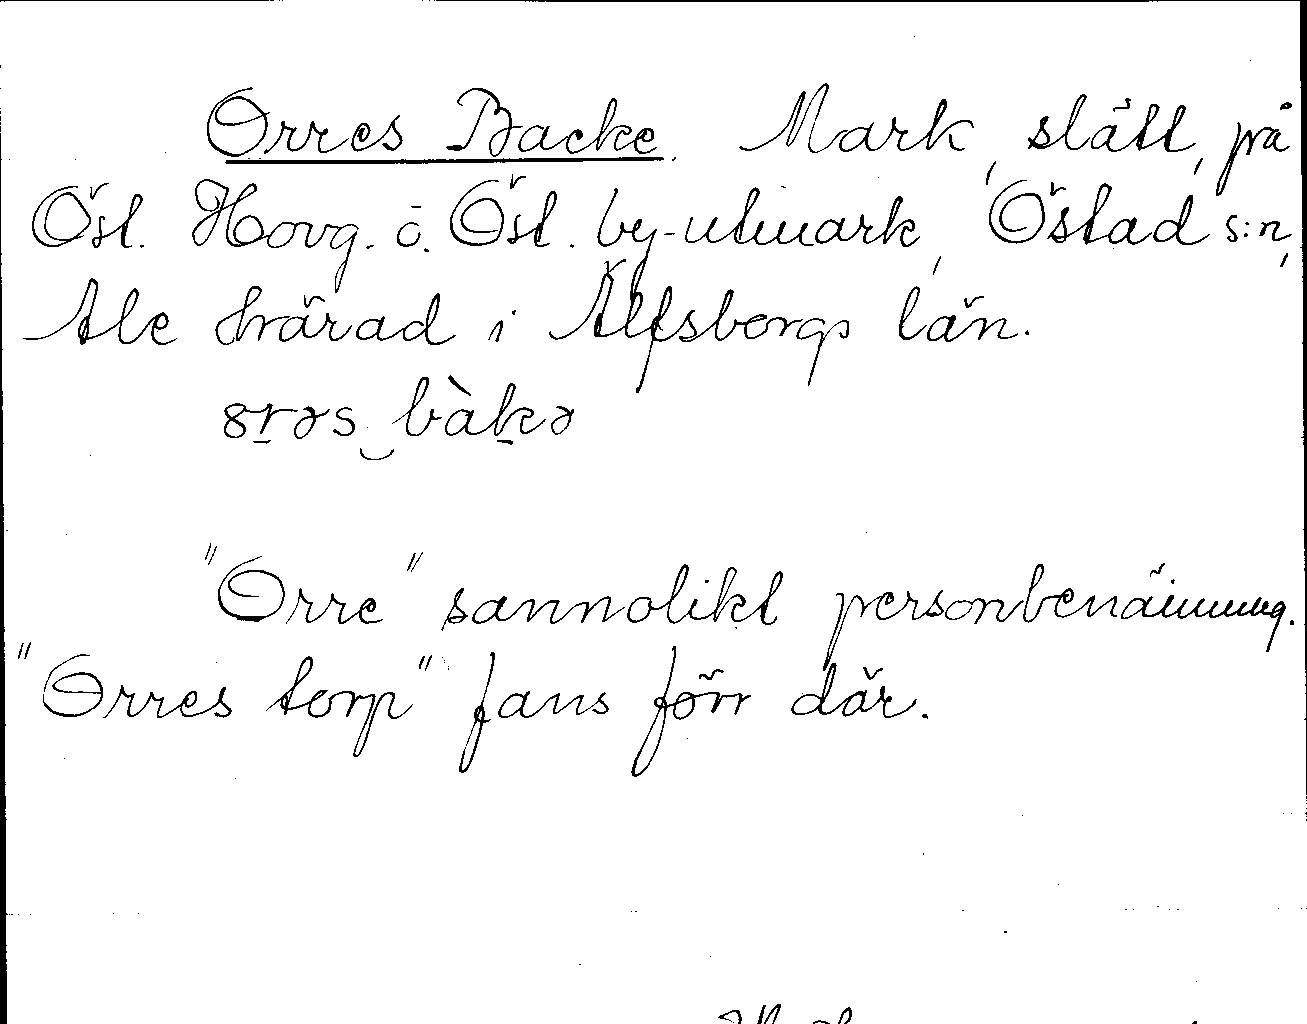 Orres Backe. Mark, slätt, på
Öst. Hovg. o. Öst. by-utmark, Östad s:n,
Ale härad i Älfsborgs län.
8rəs bàkə
"Orre" sannolikt personbenämning.
"Orres torp" fans förr där.